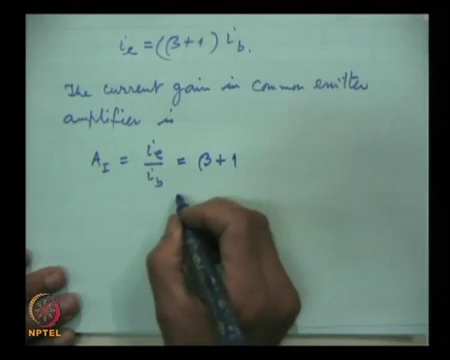 i_e = (β+1) i_b.
The current gain in common emitter
amplifier is
A_I = i_e / i_b = β+1
NPTEL